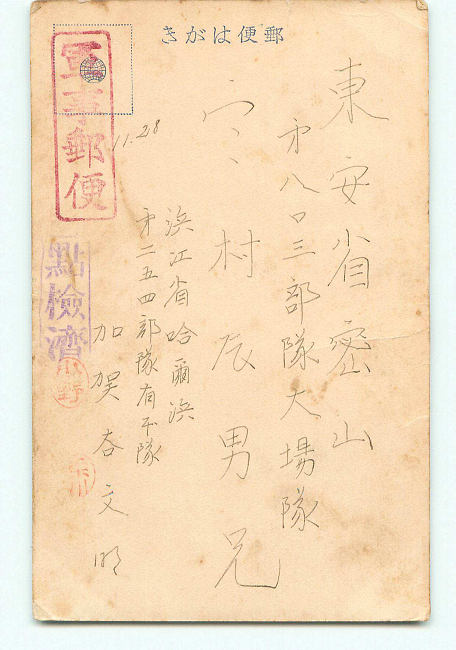 きがは便郵
軍事郵便
點檢濟
11.28
東安省密山
第八〇三部隊大場隊
村辰男兄
浜江省哈爾浜
第二五四部隊有不隊
加賀谷文明